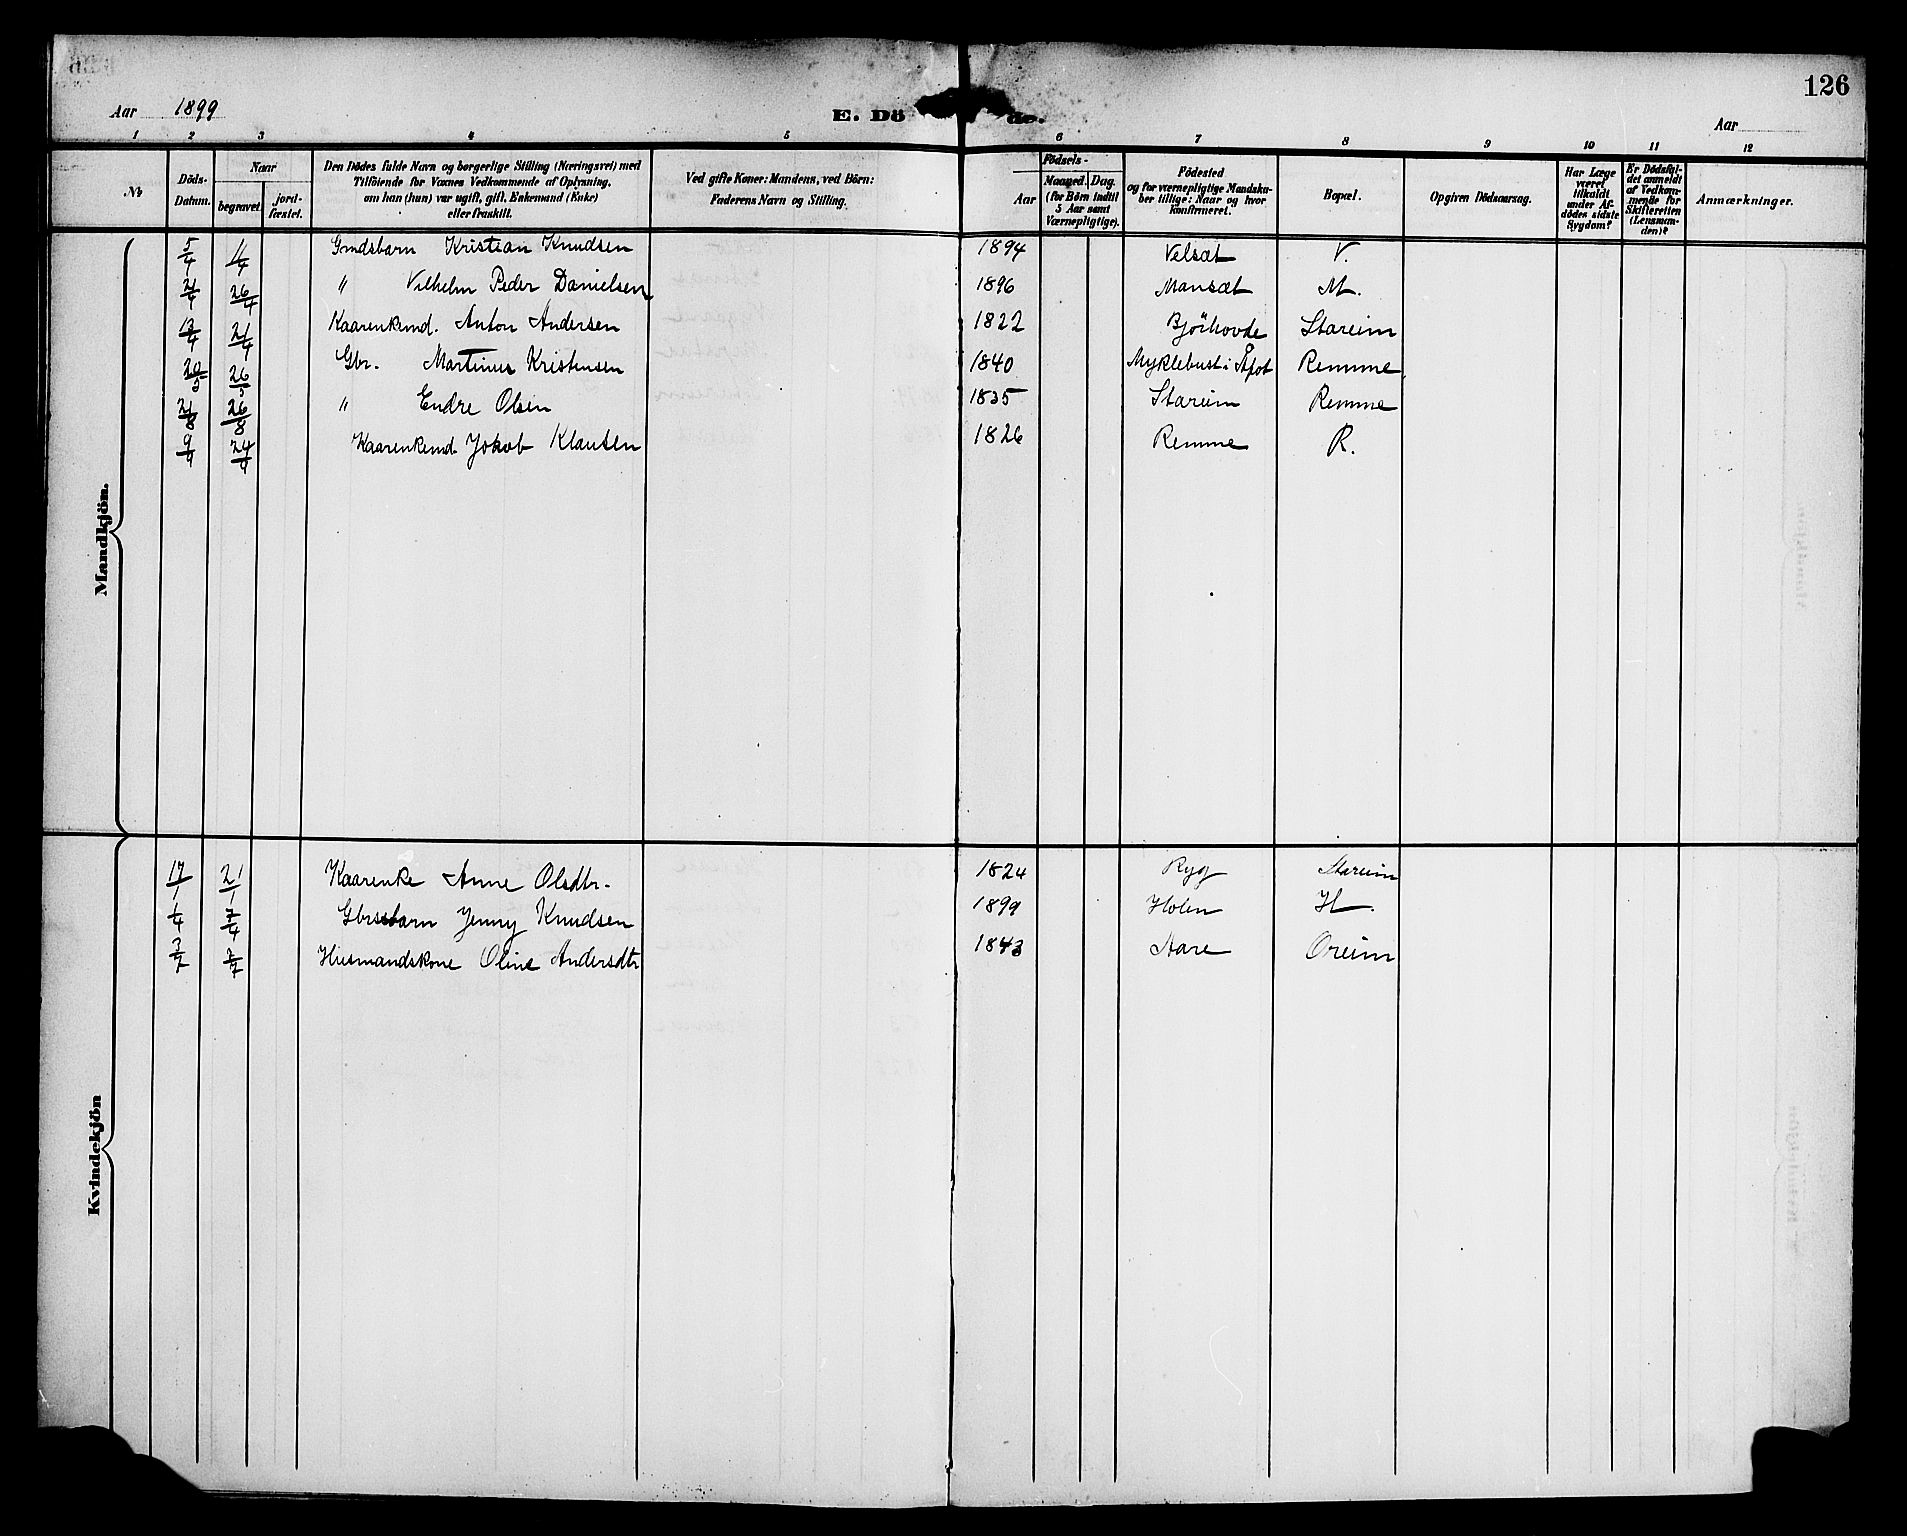 126
Aar 1899
E. Dö de.
Aar
1 2 3 4 5 6 7 8 9 10 11 12
№
Döds-Datum.
Naar
begravet.
jord-fæstet.
Den Dödes fulde Navn og borgerlige Stilling (Næringsvei) med
Tilföiende for Voxnes Vedkommende af Oplysning,
om han (hun) var ugift, gift, Enkemand (Enke)
eller fraskilt.
Ved gifte Koner: Mandens, ved Börn:
Faderens Navn og Stilling.
Födsels-
Aar
Maaned. Dag.
(for Börn indtil
5 Aar samt
Værnepligtige).
Födested
og for værnepligtige Mandska-
ber tillige: Naar og hvor
konfirmeret.
Bopæl.
Opgiven Dödsaarsag.
Har Læge
været
tilkaldt
under Af-
dödes sidste
Sygdom?
Er Dödsfal-
det anmeldt
af Vedkom-
mende for
Skifteretten
(Lensman-
den)?
Anmærkninger.
Mandkjön.
5/4 Gmdsbarn Kristian Knudsen 1894 Velsæt V.
26/4 " Vilhelm Peder Danielsen 1896 Mansæt M.
21/4 Kaarenkemd. Anton Andersen 1822 Stareim
20/5 26/5 Gbr. Martinus Kristensen 1840 Myklebust i Remme
21/8 26/8 " Endre Olsen 1835 Stareim Remme
9/9 24/9 Kaarenkemd. Jokob Klausen 1826 Remme R.
Kvindekjön
17/1 21/1 Kaarenke Anne Olsdtr. 1824 Ryg Stareim
1/4 7/4 Gbrsbarn Jenny Knudsen 1899 Holen H.
3/7 7/7 Husmandskone Oline Andersdtr 1843 Aare Oreim